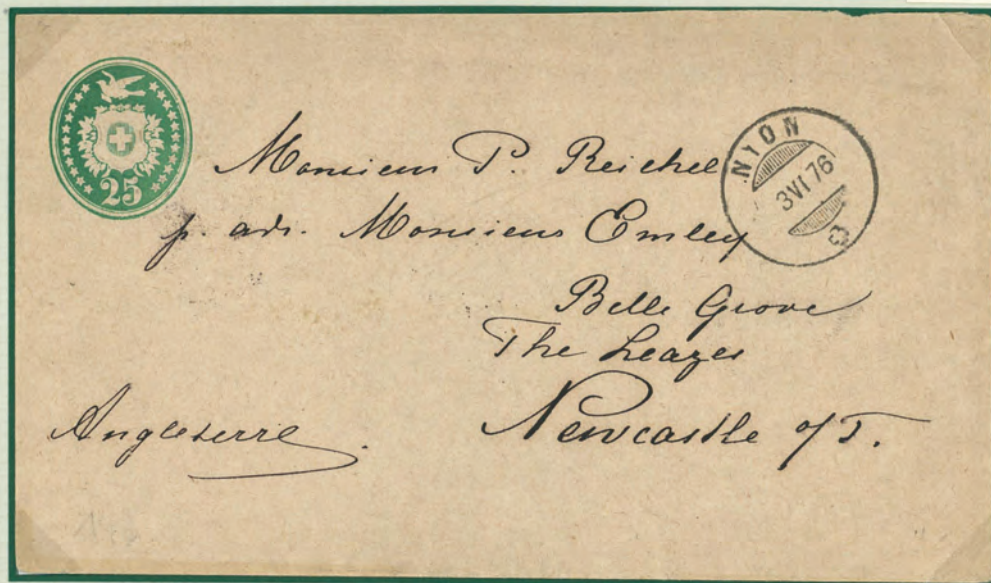 25
NYON
3 VI 76
Monsieur P. Reichel
p. adr. Monsieur Emley
Belle Grove
The Leazes
Newcastle o/T.
Angleterre.